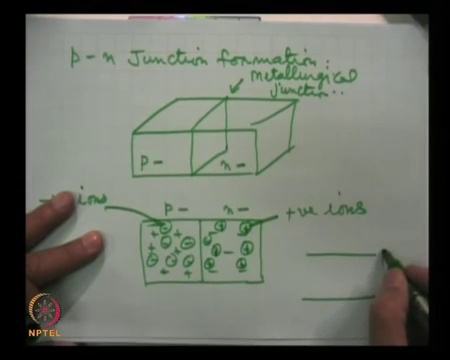 p-n Junction formation:
metallurgical
junction..
p- n-
ions p- n- +ve ions
NPTEL